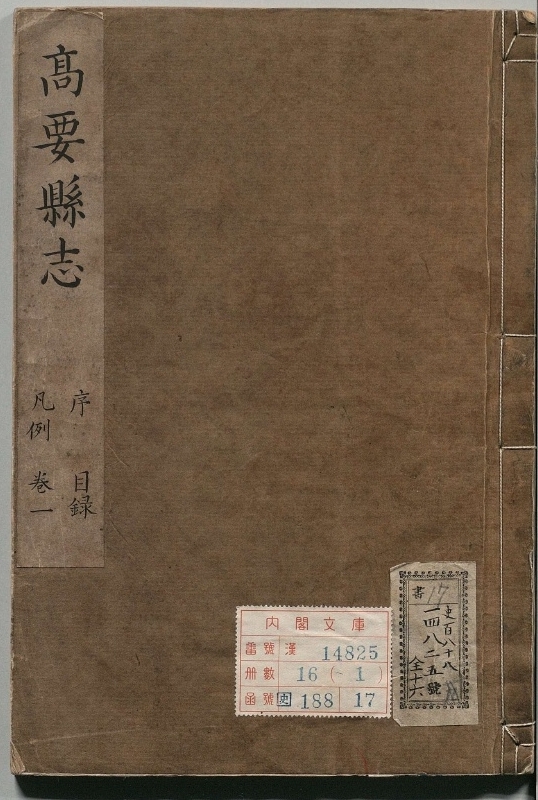 高要縣志
序 目録
凡例 卷一
內閣文庫
番號 漢 14825
冊數 16 (~1)
函號 史 188 17
書 17
史百八十八
一四八二五號
全十六